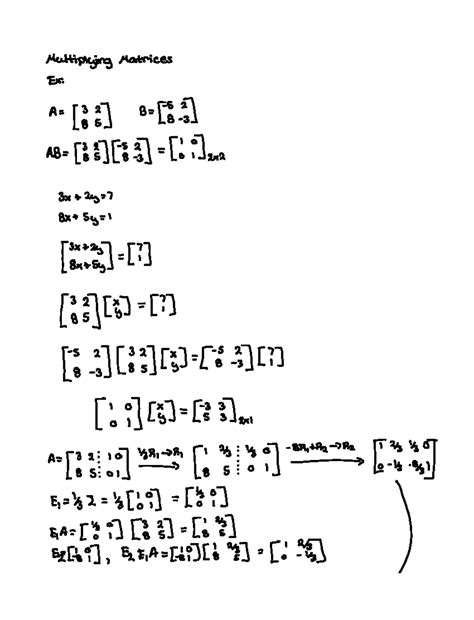 Multiplying Matrices
Ex:
A = [3 2; 8 5] B = [-5 2; 8 -3]
AB = [3 2; 8 5] [-5 2; 8 -3] = [1 0; 0 1] 2x2
3x + 2y = 7
8x + 5y = 1
[3x+2y; 8x+5y] = [7; 1]
[3 2; 8 5] [x; y] = [7; 1]
[-5 2; 8 -3] [3 2; 8 5] [x; y] = [-5 2; 8 -3] [7; 1]
[1 0; 0 1] [x; y] = [-3 3; 5 3] 2x1
A = [3 2 ⋮ 1 0; 8 5 ⋮ 0 1] 1/3R₁→R₁ [1 2/3 ⋮ 1/3 0; 8 5 ⋮ 0 1] -8R₁+R₂→R₂ [1 2/3 1/3 0; 0 -1/3 -8/3 1]
E₁ = 1/3 I = 1/3 [1 0; 0 1] = [1/3 0; 0 1]
E₁A = [1/3 0; 0 1] [3 2; 8 5] = [1 2/3; 8 5]
E₂ [1 0; -8 1], E₂ E₁A = [1 0; -8 1] [1 2/3; 8 5] = [1 2/3; 0 -1/3]